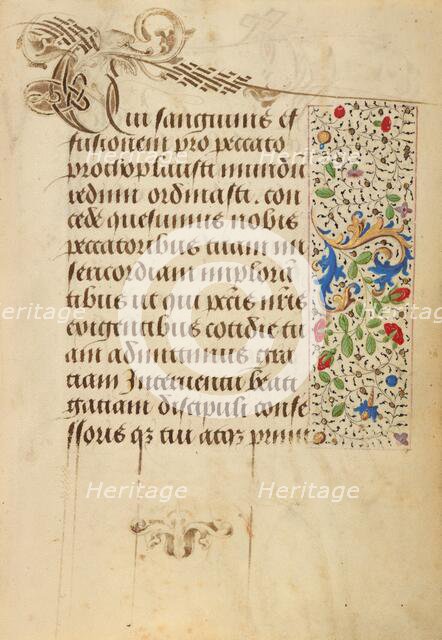 Tui sanguinis ef
fusionem pro peccato
prothoplausti mundum
redimi ordinasti. con
cede quesumus nobis
peccatoribus tuam mi
sericordiam implora
tibus ut qui pctis nris
exigentibus cotidie tu
am admittimus gra
tiam Interventu beati
gatiani discipuli confe
ssoris qz tui atqz primi
Heritage
Heritage
Heritage
Heritage
Heritage
Heritage